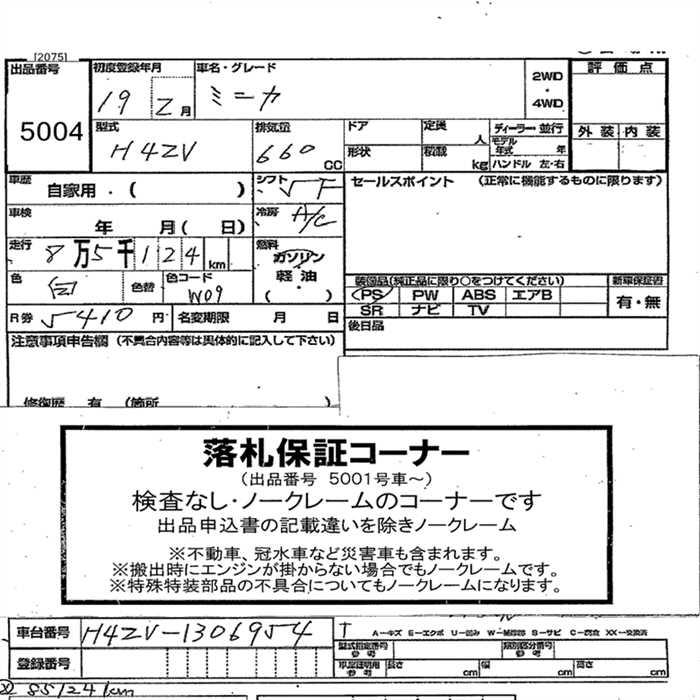 [2075]
出品番号 初度登録年月 車名・グレード 2WD ・ 4WD 評価点
5004 19 2月 ミニカ
外装 内装
型式 排気量 ドア 定員 人 ディーラー・並行
H42V 660 CC 形状 積載 kg モデル年式 年 ハンドル 左・右
車歴 自家用・( ) シフト 5F セールスポイント (正常に機能するものに限ります)
車検 年 月( 日) 冷房 A/C
走行 8万5千124km 燃料 ガソリン・軽油 ( )
色 白 色替 色コード W09
装備品(純正品に限り○をつけてください) 新車保証書
PS PW ABS エアB 有・無
SR ナビ TV
R券 5410円 名変期限 月 日 後日品
注意事項申告欄(不具合内容等は具体的に記入して下さい)
修復歴 有 (箇所 )
落札保証コーナー
(出品番号 5001号車~)
検査なし・ノークレームのコーナーです
出品申込書の記載違いを除きノークレーム
※不動車、冠水車など災害車も含まれます。
※搬出時にエンジンが掛からない場合でもノークレームです。
※特殊特装部品の不具合についてもノークレームになります。
車台番号 H42V-1306954 T A-キズ E-エクボ U-凹み W-補修跡 S-サビ C-腐食 XX-交換済
型式指定番号 参考 類別区分番号 参考
登録番号 車庫証明用 参考 長さ cm 幅 cm 高さ cm
85124km